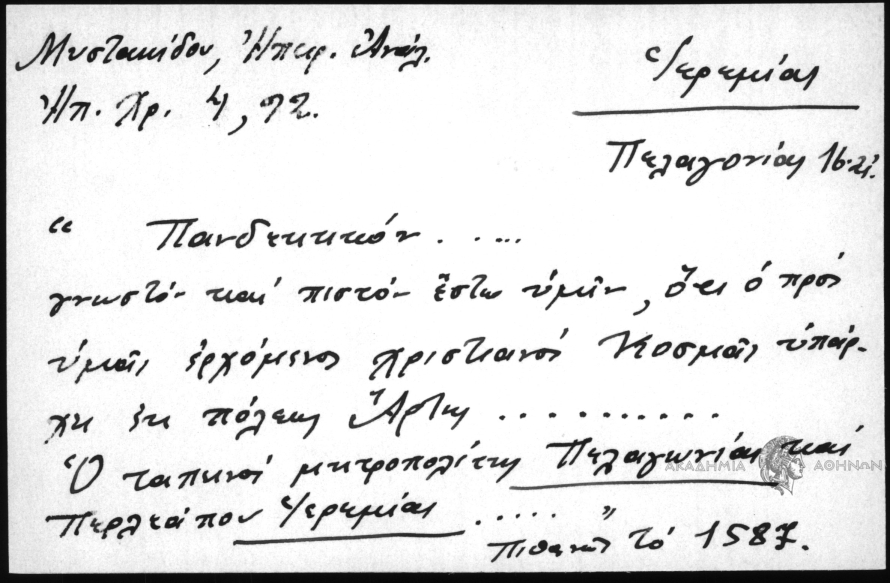 Μυστακίδου, Ἠπειρ. Ἀνάλ.
Ἠπ. Χρ. 4, 92.
Ἱερεμίας
Πελαγονίας 16.αἰ.
“ Πανδεκτικόν . . ...
γνωστόν καί πιστόν ἔστω ὑμῖν, ὅτι ὁ πρός
ὑμᾶς ἐρχόμενος χριστιανός Κοσμᾶς ὑπάρ-
χει ἐκ πόλεως Ἄρτης . . . . . . . . . .
Ὁ ταπεινός μητροπολίτης Πελαγωνίας καί
Περλεάπου Ἱερεμίας ..... ”
Πιθανῶς τό 1587.
ΑΚΑΔΗΜΙΑ ΑΘΗΝΩΝ